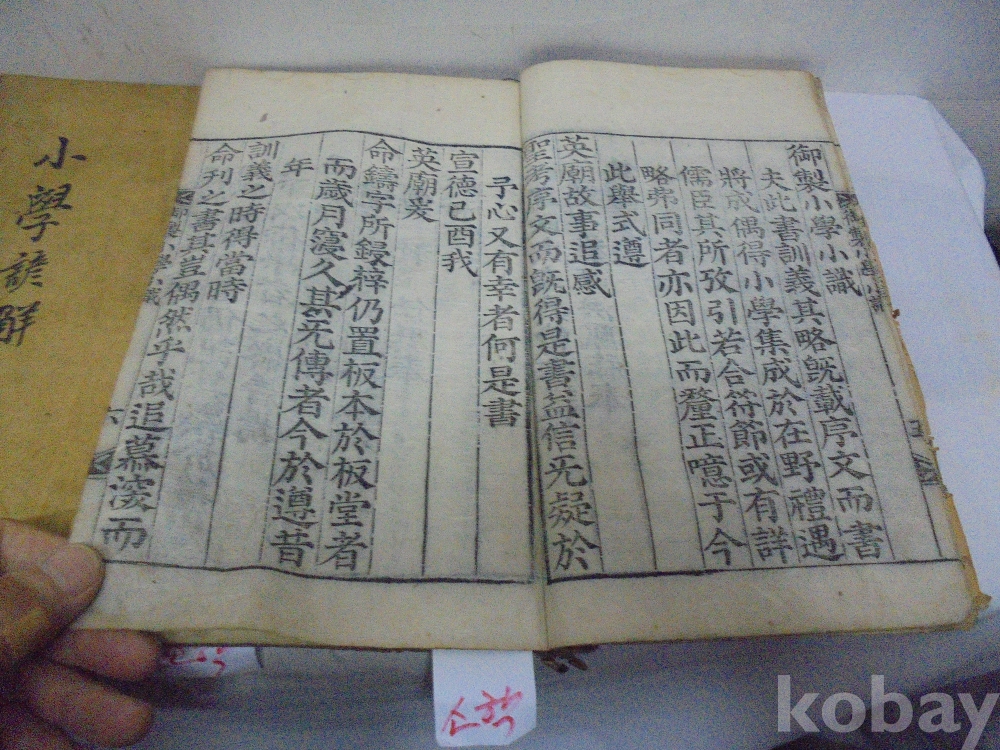 小學諺解
御製小學小識
夫此書訓義其略旣載序文而書
將成偶得小學集成於在野禮遇
儒臣其所攷引若合符節或有詳
略弗同者亦因此而釐正噫于今
此舉式遵
英廟故事追感
聖考序文而旣得是書益信无疑於
予心又有幸者何是書
宣德己酉我
英廟爰
命鑄字所鋟梓仍置板本於板堂者
而歲月寖久其无傳者今於遵昔
年
訓義之時得當時
命刊之書其豈偶然乎哉追慕深而
六
소학
kobay